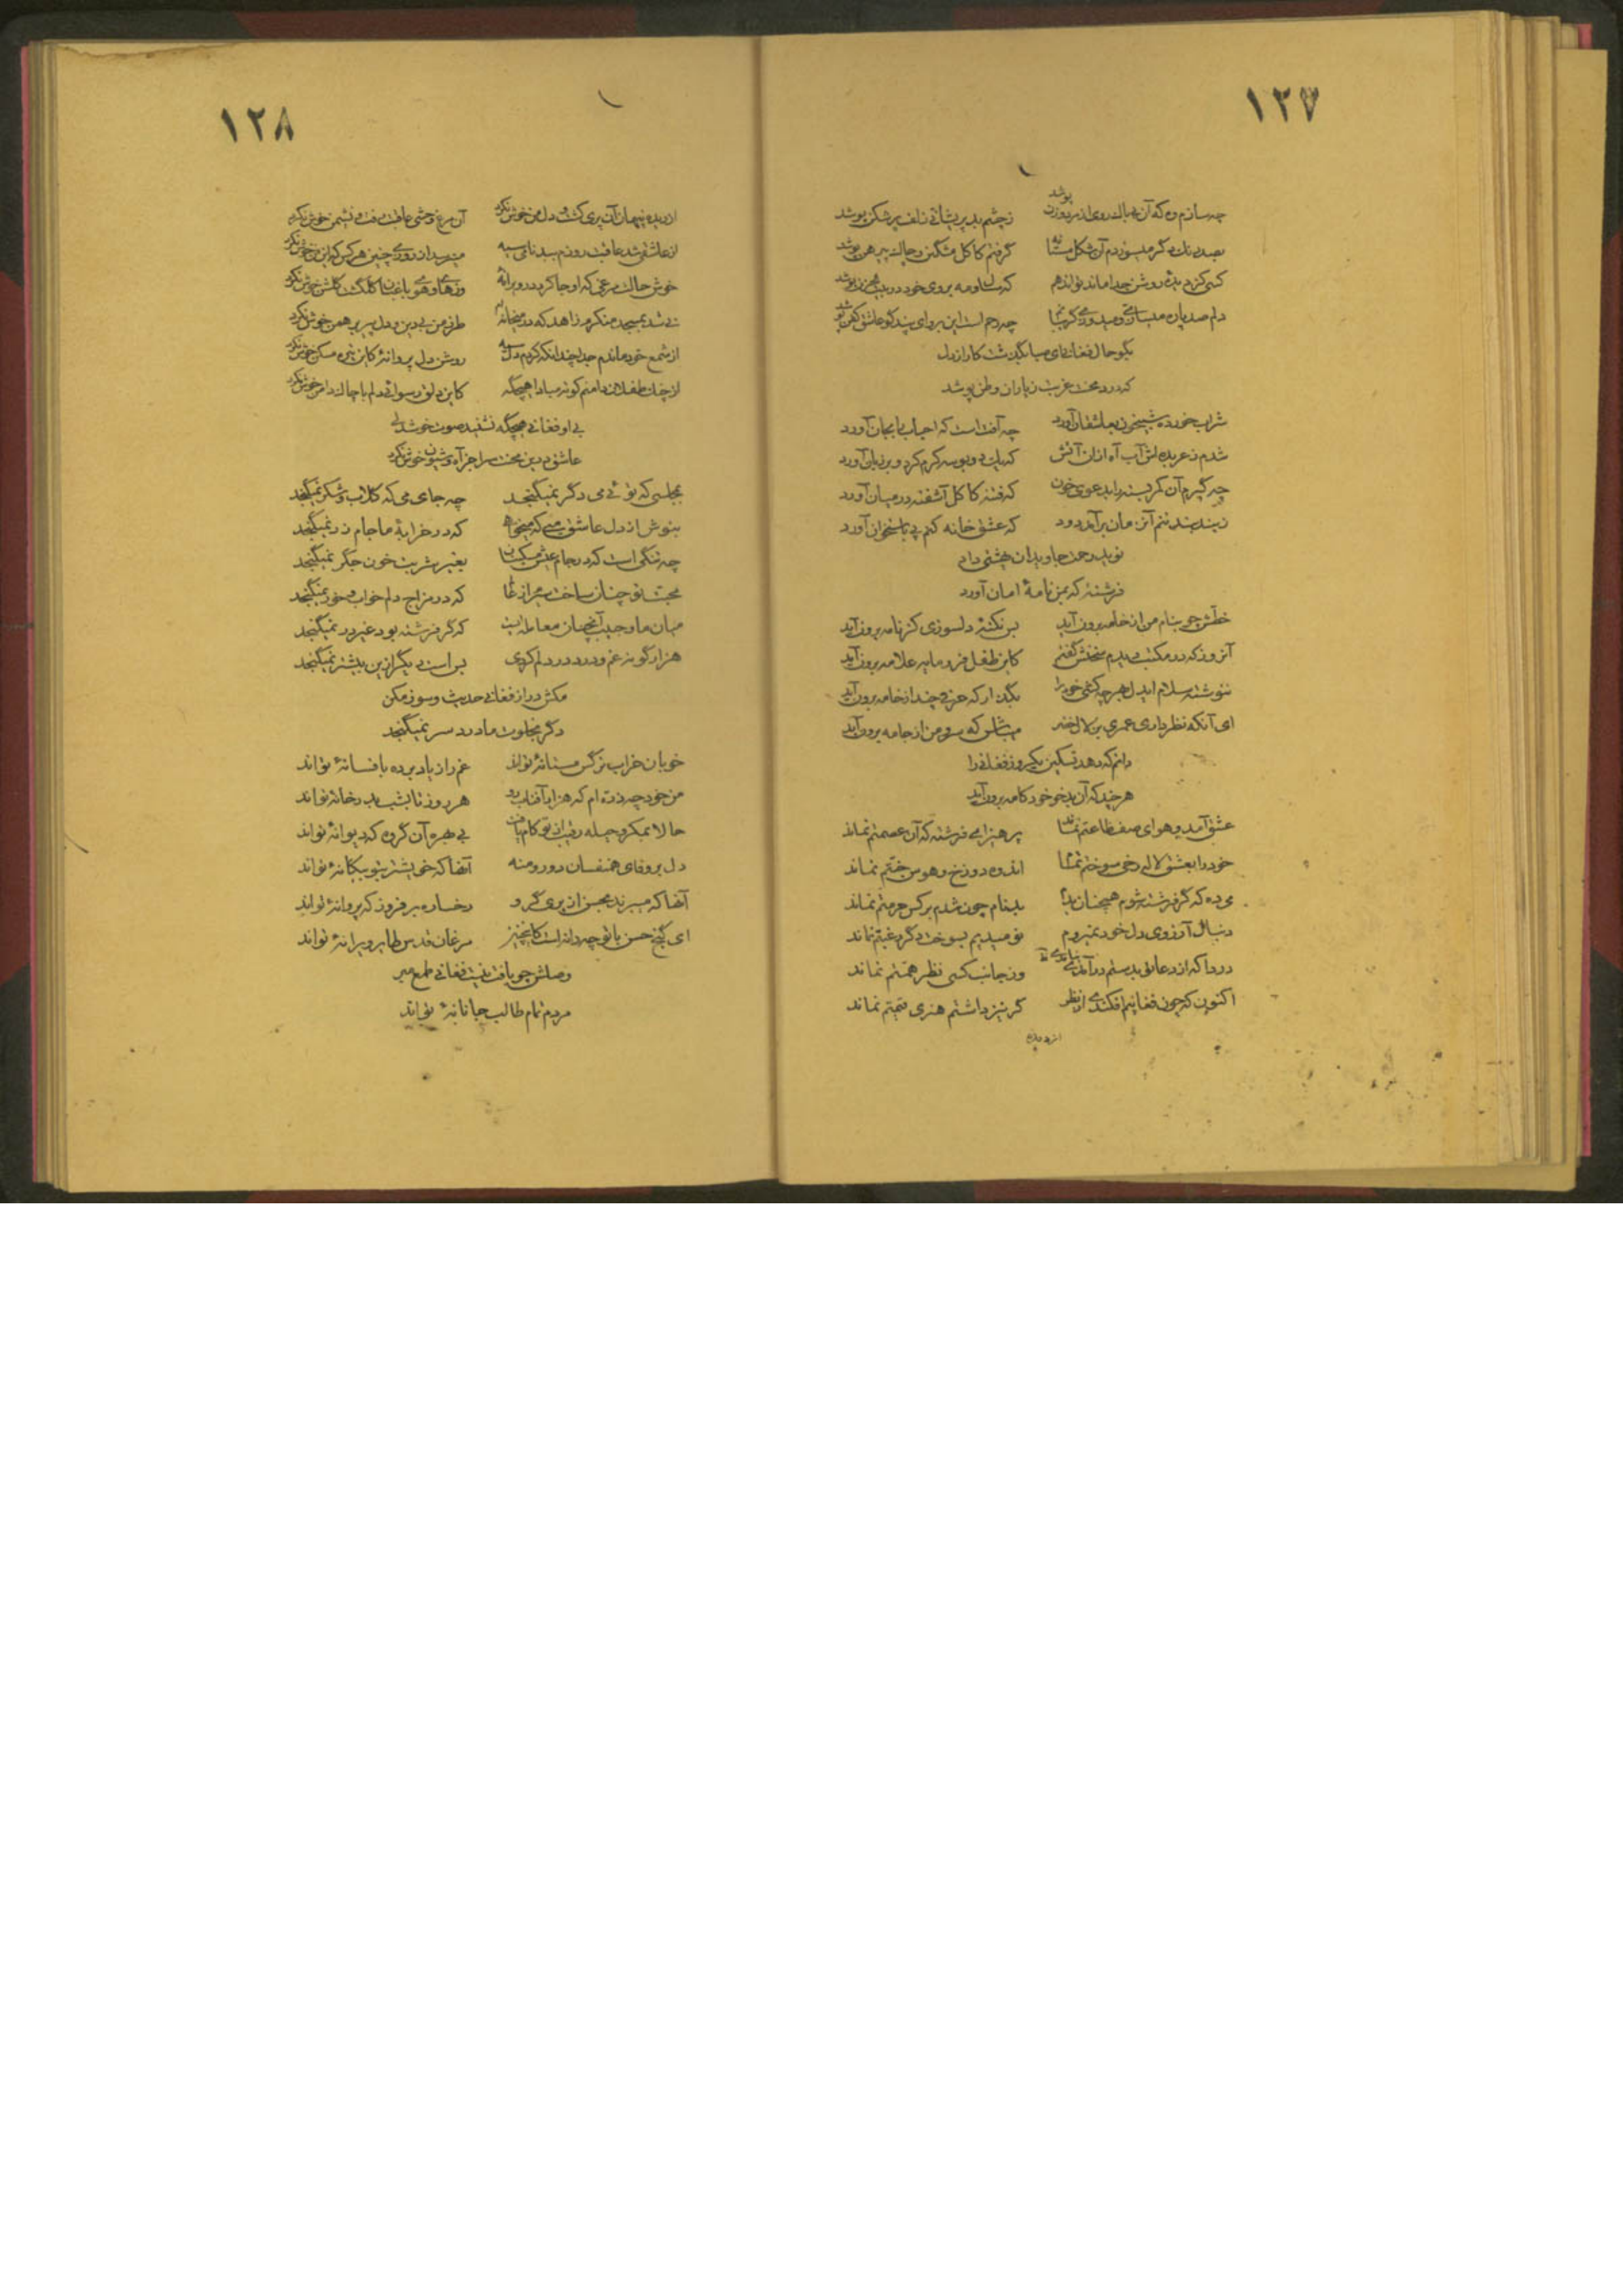 ١٢٧
پوشد
چه سازم وه که آن بیباک روی از من پوشد ز چشم بد پریشانی زلف پر شکن پوشد
بصد نازک دگر میسوزدم آن شکل مستانه گرفتم کاکل مشگین و چاک پیرهن پوشد
کسی کز دیده روشن جدا ماند تواند هم که سال و مه بروی خود در بیت الحزن پوشد
دلم صد پاره میسازی و میدوزی چه رحم است این
بگو حال فغانی ای صبا بگذشت کار از دل
که درد محنت غربت ز یاران وطن پوشد
شراب خورده شبیخون بعاشقان آورد چه آفت است که احباب را بجان آورد
شدم ز عربده لش آب آه ازان آتش که یک دو بوسه کرم کرد و بر زبان آورد
چه گیرم آن کمر بسته را بدعوی خون که فتنه کاکل آشفته در میان آورد
ز بند بند تنم آن زمان برآمد دود که عشق خانه کنم پی باستخوان آورد
نوید رحمت جاوید ان بهشتی داد
فرشته که بمن نامهٔ امان آورد
خطش چو بنام من از خامه برون آید بس نکتهٔ دلسوزی کز نامه برون آید
آنروز که در مکتب دیدم سخنش گفتم کاین طفل فرو مایه علامه برون آید
ننوشته سلام ایدل هر چه کشی خود را بگذار که حرفی چند از خامه برون آید
ای آنکه نظر داری عمری بر لاله‌ رخ میباش که سرو من از جامه برون آید
دانم که دهد تسکین یکروز فغانی را
هر چند که آن بدخو خودکامه برون آید
عشق آمد و هوای صف طاعتم نماند پرهیز ای فرشته که آن عصمتم نماند
خود را بعشق لاله رخی سوختم تمام اندوه دوزخ و هوس جنتم نماند
می ده که گر فرشته شوم همچنان بدم بدنام چون شدم بر کس حرمتم نماند
دنبال آرزوی دل خود نمیروم نومیدیم بسوخت دگر رغبتم نماند
دردا که از دعای بدستم در آمدی وز جانب کسی نظر همتم نماند
اکنون که چون فغانیم افکندی از نظر گر نیز داشتم هنری قیمتم نماند
از دیده
١٢٨
از دیده پنهان آن پری گشت و دل من خوش نکرد آن مرغ وحشی عاقبت رفت و نشیمن خوش نکرد
از عاشقی شد عاقبت روزم سیه نامم سیه میرسد از روزی چنین هر کس که این فن خوش نکرد
خوش حال مرغی که او جا کرد در ویرانه وز های و هوی باغبان گلگشت گلشن خوش نکرد
نی شد بمسجد منکرم زاهد که در میخانه طرز من بی دین و دل پیر برهمن خوش نکرد
از شمع خود ماندم جدا چندانکه کردم دل سیه روشن دل پروانه کاین تیره مسکن خوش نکرد
از چنگ طفلان دامنم کوته مبادا هیچگه کاین دلق رسوائی دلم با چاک دامن خوش نکرد
بی او فغانی هیچگه نشنید صوت خوشدلی
عاشق درین محنت سرا جز آه و شیون خوش نکرد
بمجلسی که توئی می دگر نمیگنجد چه جای می که گلاب و شکر نمیگنجد
بنوش از دل عاشق میی که میخواهی که در خرابهٔ ما جام زر نمیگنجد
چه تنگی است که در جام عیش مسکینان بغیر شربت خون جگر نمیگنجد
محبت تو چنان ساخت که در مزاج دلم خواب و خور نمیگنجد
میان ما و حبیب آنچنان معامله ایست که گر فرشته بود غیر در نمیگنجد
هزار گونه غم و درد در دلم کردی بس است دیگر ازین بیشتر نمیگنجد
مکش دراز فغانی حدیث و سوز مکن
دگر بخلوت ما درد سر نمیگنجد
خوبان خراب نرگس مستانهٔ تواند غم را ز یاد برده بافسانهٔ تواند
من خود چه ذره ام که هزار آفتاب رو هر روز تا بشب بدر خانهٔ تواند
حالا بمکر و حیله رقیب از تو کام یافت بی بهره آن گروه که دیوانهٔ تواند
دل بر وفای همنفسان دو رو منه آنها که خویشترند بیگانهٔ تواند
آنها که میبرند بحسن از پری گرو رخساره بر فروز که پروانهٔ تواند
ای گنج حسن با تو چه دانه است کاینچنین مرغان قدس طایر ویرانهٔ تواند
وصلش چو یافت نیست فغانی طمع مبر
مردم تمام طالب جانانهٔ تواند